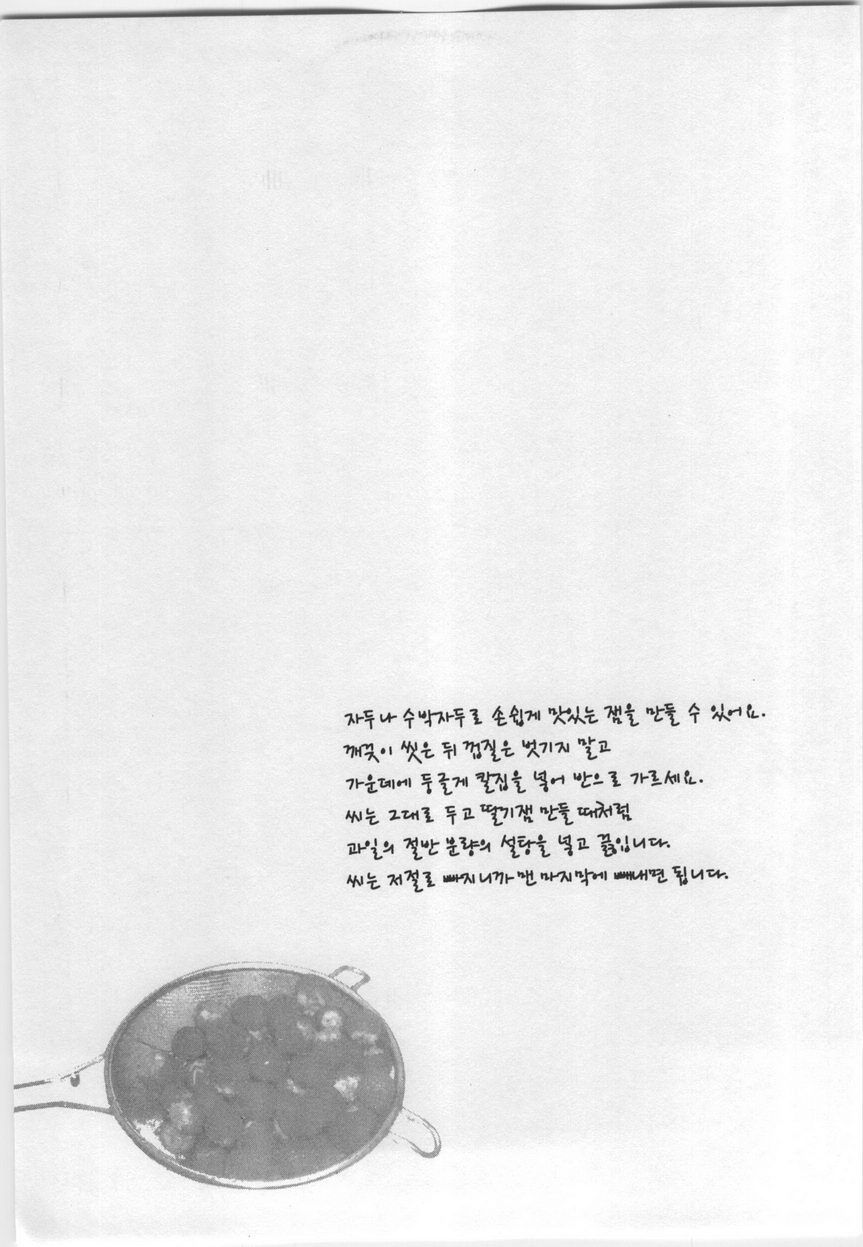 자두나 수박자두로 손쉽게 맛있는 잼을 만들 수 있어요.
깨끗이 씻은 뒤 껍질은 벗기지 말고
가운데에 둥글게 칼집을 넣어 반으로 가르세요.
씨는 그대로 두고 딸기잼 만들 때처럼
과일의 절반 분량의 설탕을 넣고 끓입니다.
씨는 저절로 빠지니까 맨 마지막에 빼내면 됩니다.